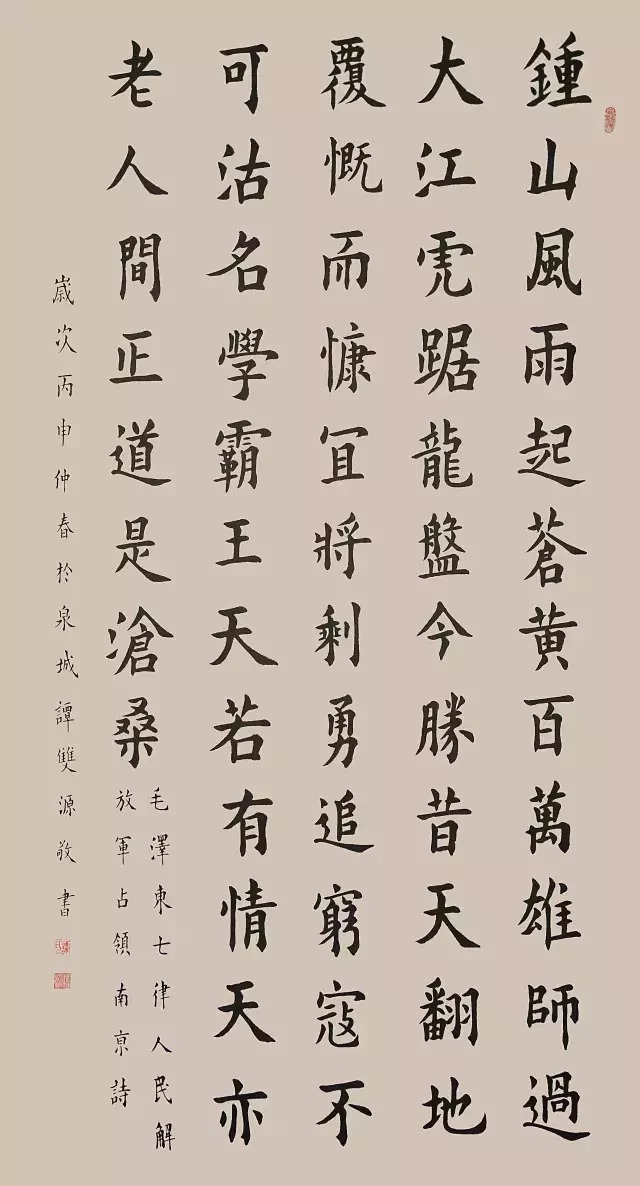 鍾山風雨起蒼黄百萬雄師過
大江虎踞龍盤今勝昔天翻地
覆慨而慷宜將剩勇追窮寇不
可沽名學霸王天若有情天亦
老人間正道是滄桑
毛澤東七律人民解
放軍占領南京詩
歲次丙申仲春於泉城譚雙源敬書